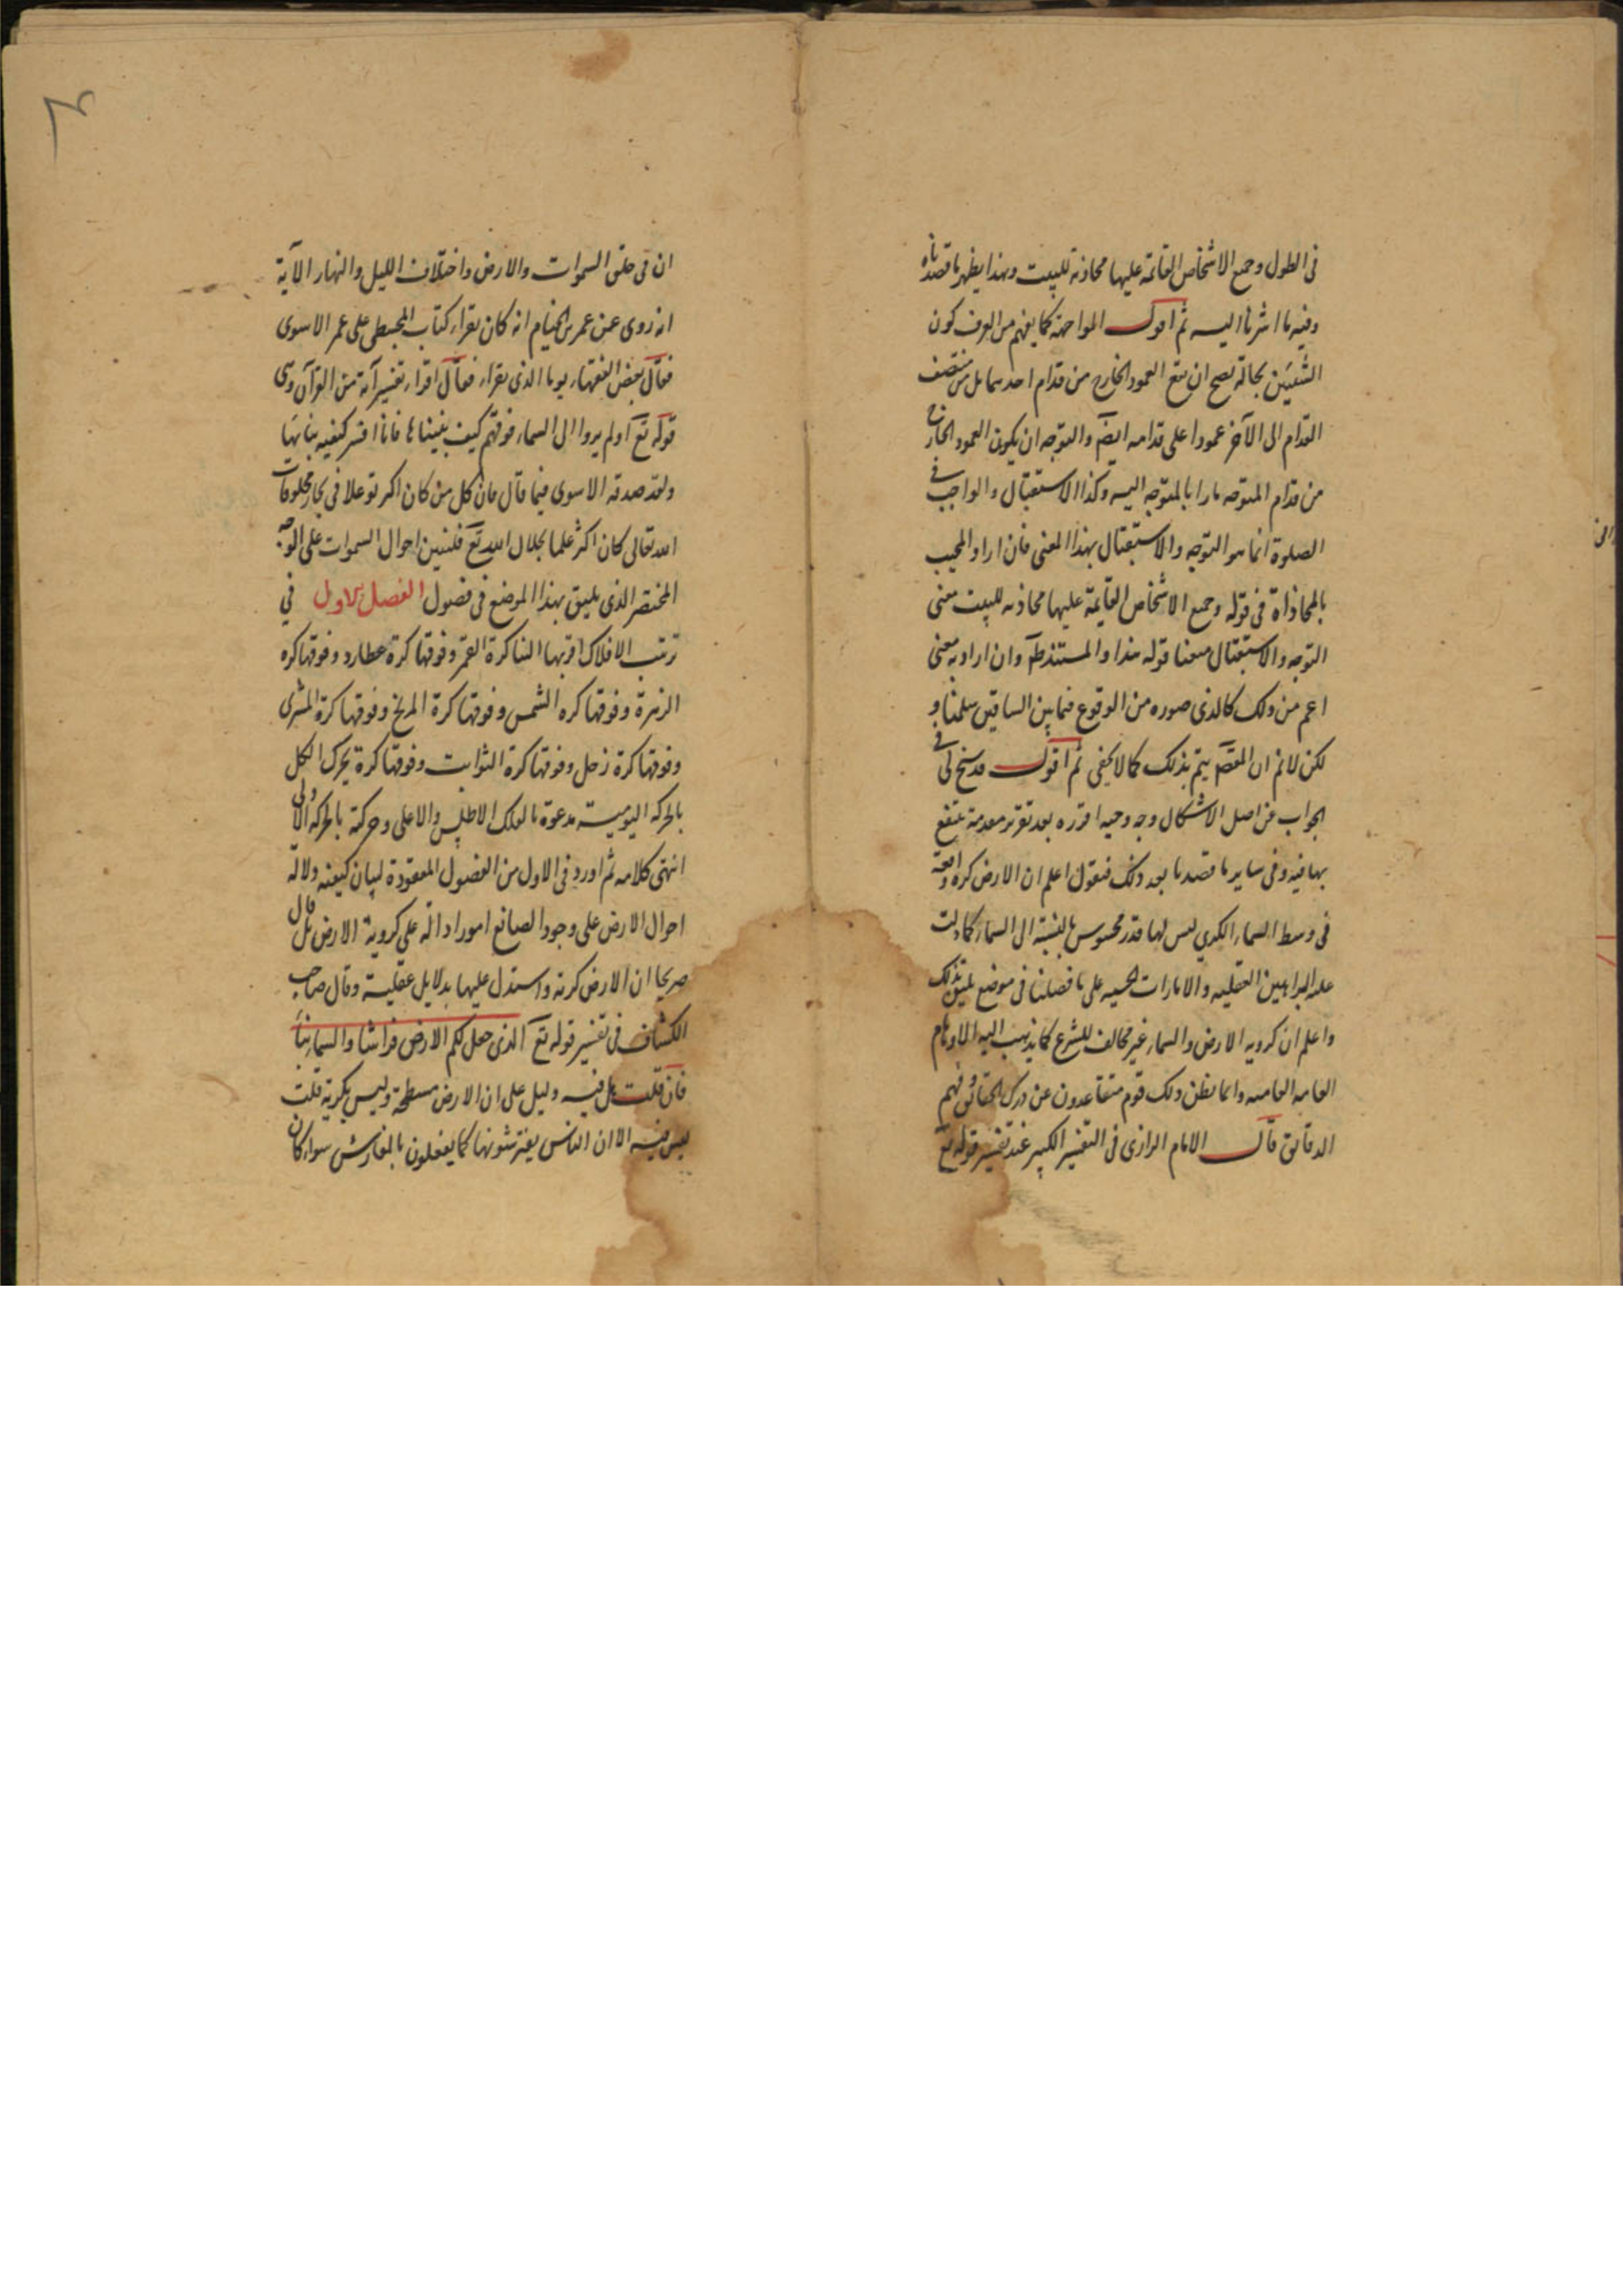 فى الطول وجميع الاشخاص القائمة عليها محاذية للبيت وبهذا يظهر ما قصدناه
وفيه ما اشرنا اليه ثم اقول المواجهة كما يفهم من العرف كون
الشيئين بحالة يصح ان يقع العمود الخارج من قدام احدهما بل من منتصف
القدام الى الآخر عمودا على قدامه ايضا والتوجه ان يكون العمود الخارج
من قدام المتوجه مارا بالمتوجه اليه وكذا الاستقبال والواجب فى
الصلوة انما هو التوجه والاستقبال بهذا المعنى فان اراد المجيب
بالمحاذاة فى قوله وجميع الاشخاص القائمة عليها محاذيه للبيت معنى
التوجه والاستقبال منعنا قوله هذا والمستند ظ وان اراد به معنى
اعم من ذلك كالذى صوره من الوقوع فيما بين الساقين سلمناه و
لكن لانم ان المقص يتم بذلك كما لا يخفى ثم اقول قد سنح لى فى
الجواب عن اصل الاشكال وجه وجيه اقرره بعد تقرير مقدمة ينتفع
بها فيه وفى ساير ما قصدنا بعد ذلك فنقول اعلم ان الارض كره واقعة
فى وسط السماء الكرى ليس لها قدر محسوس بالنسبة الى السماء كما دلت
عليه البراهين العقليه والامارات الحسيه على ما فصلنا فى موضع يليق بذلك
واعلم ان كرويه الارض والسماء غير مخالف للشرع كما يذهب اليه الاوهام
العاميه وانما يظن ذلك قوم متقاعدون عن درك الحقائق وفهم
الدقايق قال الامام الرازى فى التفسير الكبير عند تفسير قوله تع
ان فى خلق السموات والارض واختلاف الليل والنهار الآية
انه روى عن عمر بن الخيام انه كان يقراء كتاب المجسطى على عمر الاسوى
فقال بعض الفقهاء يوما الذى يقراء فقال اقراء تفسير آية من القرآن وهى
قوله تع اولم يروا الى السماء فوقهم كيف بنيناها فانا افسر كيفيه بنائها
ولقد صدق الاسوى فيما قال فان كل من كان اكثر توغلا فى بحار مخلوقات
الله تعالى كان اكثر علما بجلال الله تع فلنبين احوال السموات على الوجه
المختصر الذى يليق بهذا الموضع فى فصول الفصل الاول في
ترتيب الافلاك اقربها الينا كرة القمر وفوقها كرة عطارد وفوقها كره
الزهرة وفوقها كره الشمس وفوقها كرة المريخ وفوقها كرة المشترى
وفوقها كرة زحل وفوقها كرة الثوابت وفوقها كرة يحرك الكل
بالحركه اليومية مدعوة بالفلك الاطلس والاعلى وحركته بالحركه الاولى
انتهى كلامه ثم اورد فى الاول من الفصول المعقودة لبيان كيفيه دلالة
احوال الارض على وجود الصانع امورا دالة على كروية الارض بل قال
صريحا ان الارض كرية واستدل عليها بدلايل عقلية وقال صاحب
الكشاف فى تفسير قوله تع الذى جعل لكم الارض فراشا والسماء بناء
فان قلت هل فيه دليل على ان الارض مسطحة وليس بكرية قلت
ليس فيه الا ان الناس يفترشونها كما يفعلون بالمفارش سواء كان